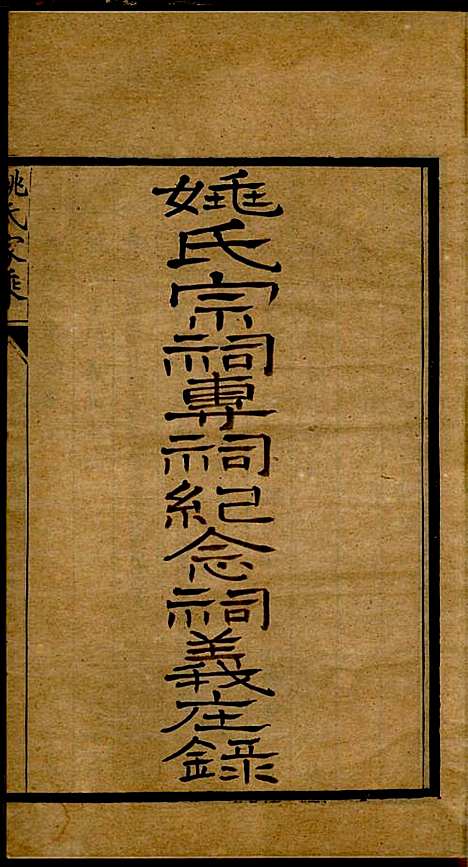 姚氏宗祠專祠紀念祠義庄錄
姚氏家乘